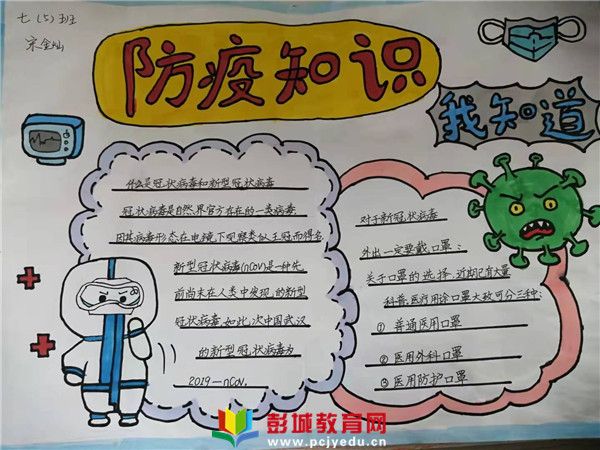 七(5)班
宋金灿
防疫知识
我知道
什么是冠状病毒和新型冠状病毒
冠状病毒是自然界官方存在的一类病毒
因其病毒形态在电镜下观察类似王冠而得名
新型冠状病毒(nCoV)是一种先
前尚未在人类中发现的新型
冠状病毒,如此次中国武汉
的新型冠状病毒为
2019-nCoV.
对于新冠状病毒
外出一定要戴口罩:
关于口罩的选择,近期已有大量
科普,医疗用途口罩大致可分三种:
①普通医用口罩
②医用外科口罩
③医用防护口罩
彭城教育网
www.pcjyedu.cn